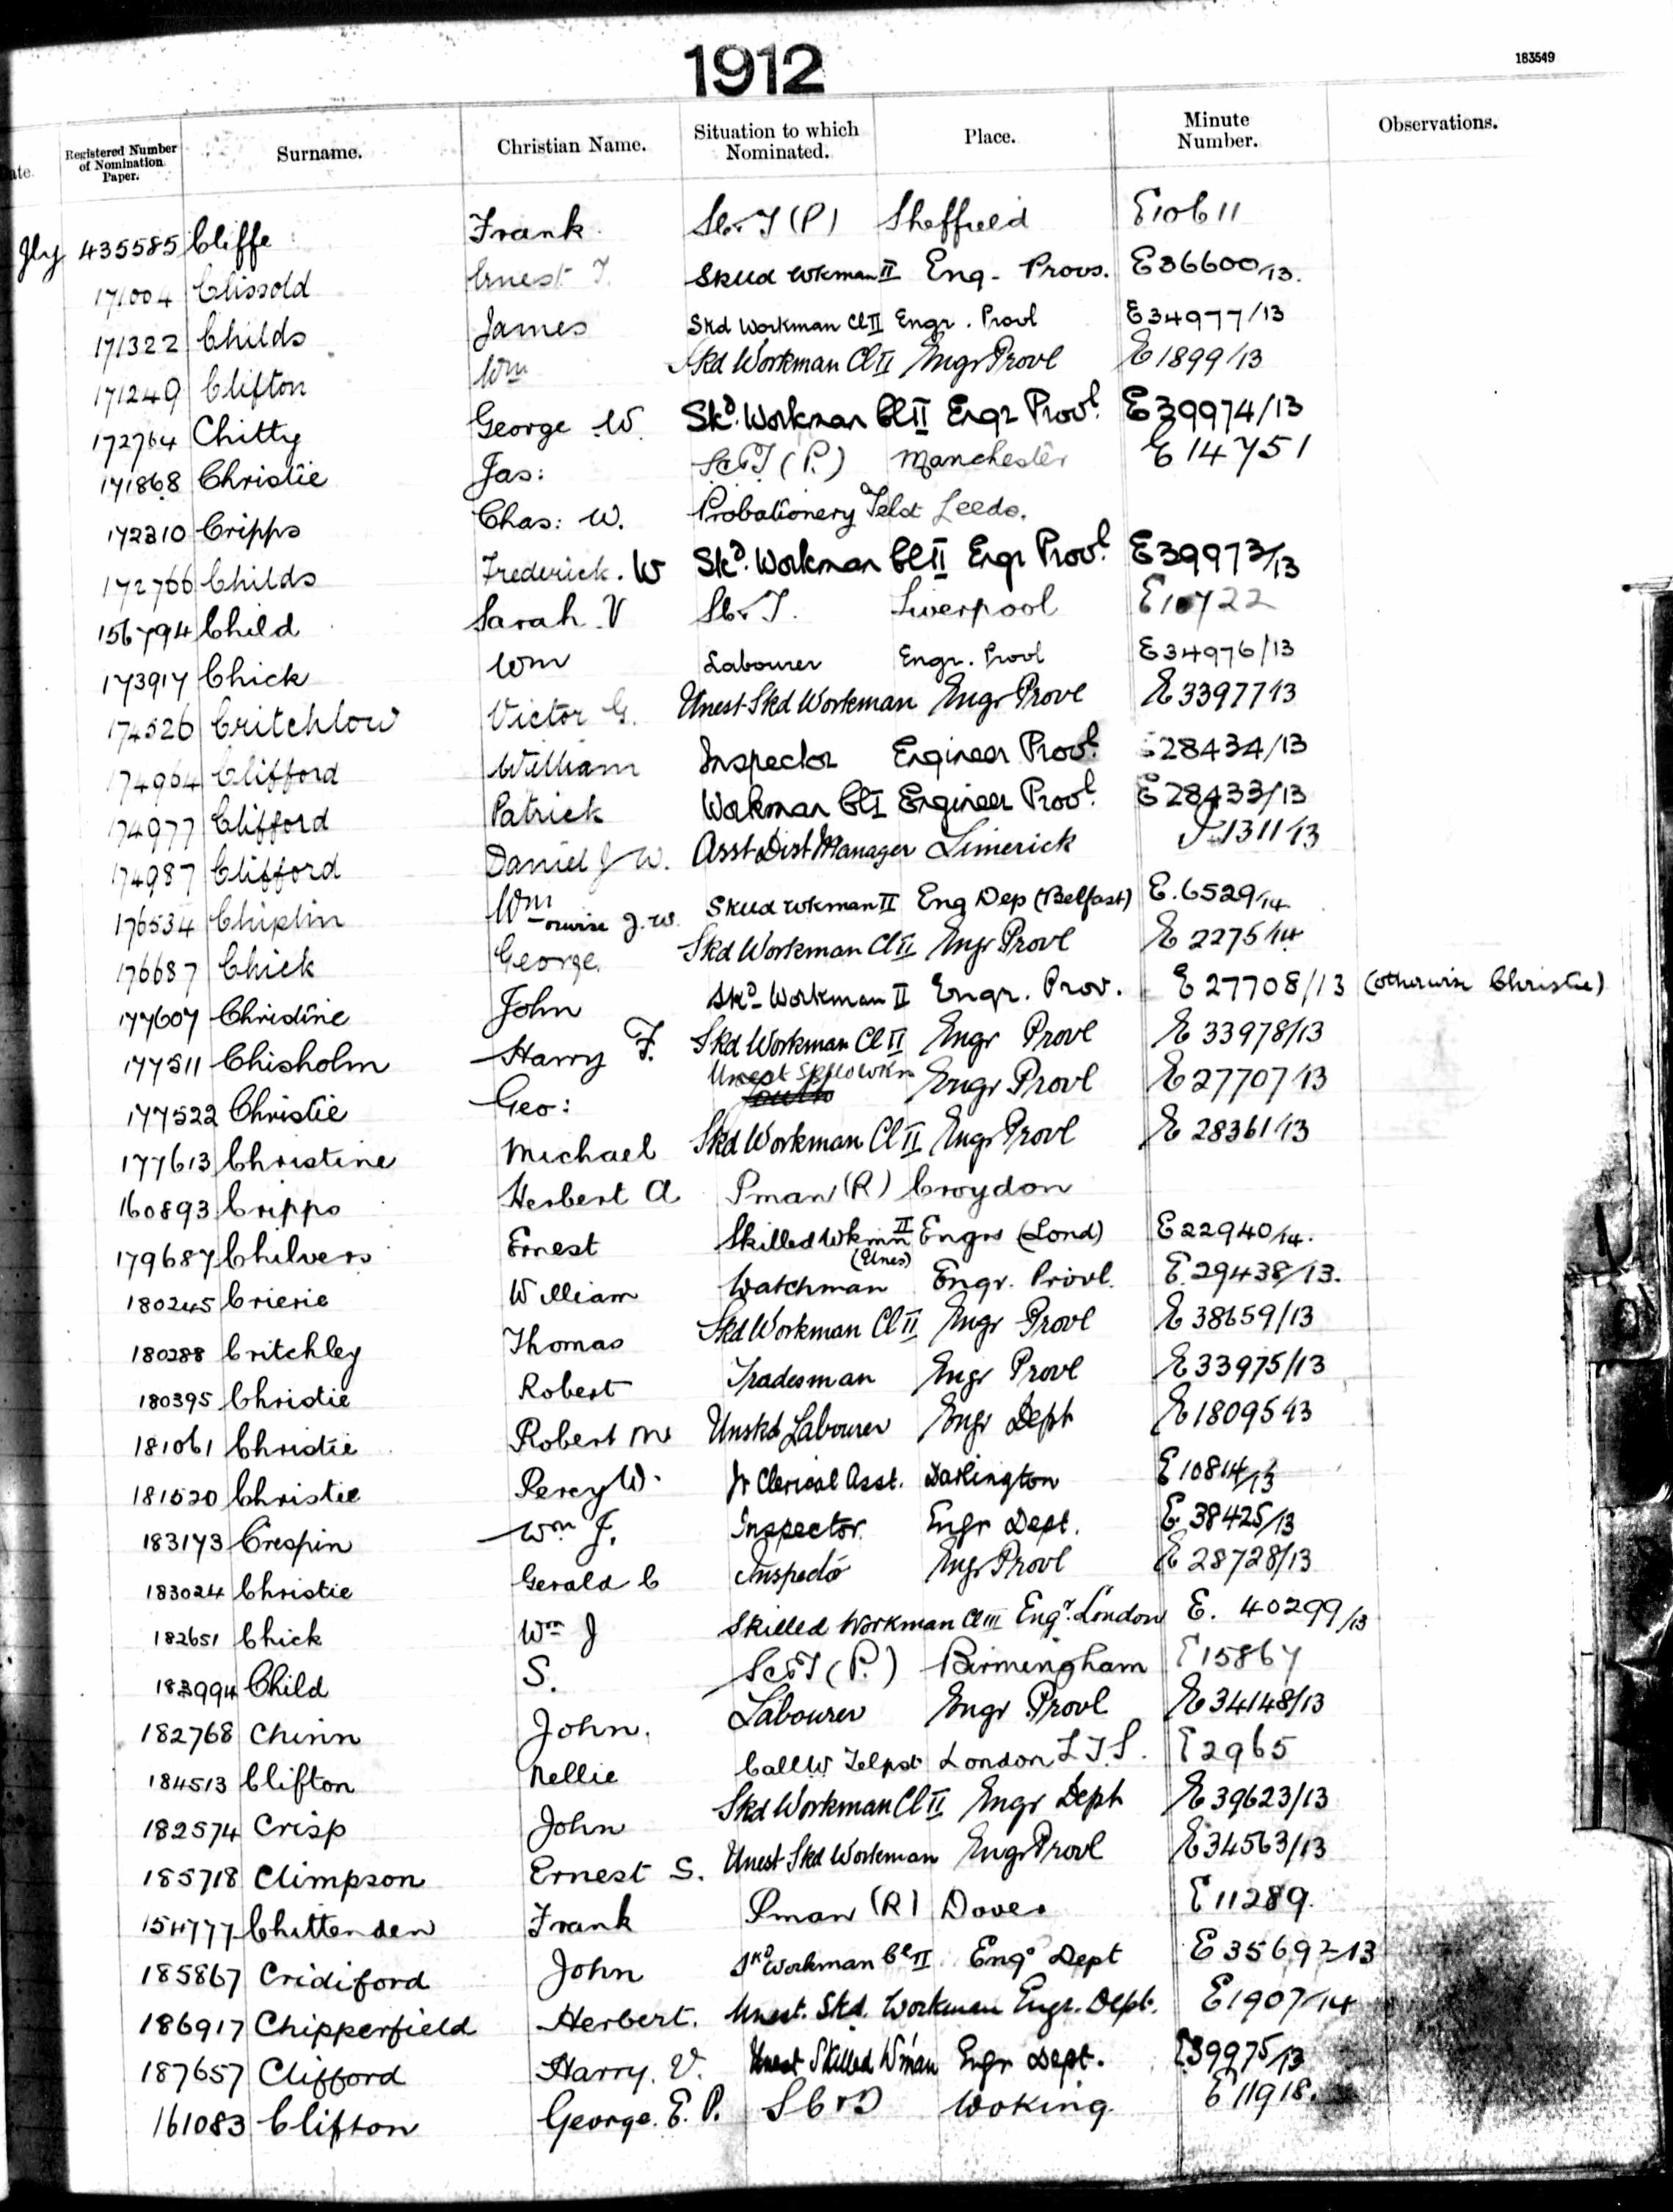 1912
183549
Date. Registered Number of Nomination Paper. Surname. Christian Name. Situation to which Nominated. Place. Minute Number. Observations.
Jly 435585 Cliffe Frank S.C.&T (P) Sheffield E10611
171004 Clissold Ernest T. Skud Wkman II Eng. Provs. E36600/13.
171322 Childs James Skd Workman Cl II Engr. Provl E34977/13
171249 Clifton Wm Skd Workman Cl II Engr Provl E1899/13
172764 Chitty George W. Skd. Workman Cl II Engr Provl. E39974/13
171868 Christie Jas: SC&T (P.) Manchester E14751
172310 Cripps Chas: W. Probationery Telst Leeds.
172766 Childs Frederick. W Skd. Workman Cl II Engr Provl. E39973/13
156794 Child Sarah V S.C.&T. Liverpool E10722
173917 Chick Wm Labourer Engr. Provl E34976/13
174526 Critchlow Victor G. Unest Skd Workman Engr Provl E33977/13
174964 Clifford William Inspector Engineer Provl. E28434/13
174977 Clifford Patrick Workman Cl I Engineer Provl. E28433/13
174987 Clifford Daniel J W. Asst Dist Manager Limerick 1311/13
176534 Chiplin Wm orwise J. W. Skud Wkman II Eng Dep (Belfast) E.6529/14
176687 Chick George. Skd Workman Cl II Engr Provl E2275/14
177607 Christine John Skd Workman II Engr. Prov. E27708/13 (otherwise Christie)
177511 Chisholm Harry F. Skd Workman Cl II Engr Provl E33978/13
177522 Christie Geo: Unest Skd Wkn Engr Provl E27707/13
177613 Christine Michael Skd Workman Cl II Engr Provl E28361/13
160893 Cripps Herbert A Pman (R) Croydon
179687 Chilvers Ernest Skilled Wkmn II (Unes) Engrs (Lond) E22940/14.
180245 Crierie William Watchman Engr. Provl. E29438/13.
180288 Critchley Thomas Skd Workman Cl II Engr Provl E38659/13
180395 Christie Robert Tradesman Engr Provl E33975/13
181061 Christie Robert M Unskd Labourer Engr Dept E18095/13
181520 Christie Percy W. Jr Clerical Asst. Darlington E10814/13
183173 Crespin Wm J. Inspector Engr Dept. E38425/13
183024 Christie Gerald C Inspector Engr Provl E28728/13
182651 Chick Wm J Skilled Workman Cl III Engr. London E. 40299/13
183994 Child S. SC&T (P.) Birmingham E15867
182768 Chinn John. Labourer Engr Provl E34148/13
184513 Clifton Nellie Call W Telpst London L.T.S. E2965
182574 Crisp John Skd Workman Cl II Engr Dept E39623/13
185718 Climpson Ernest S. Unest Skd Workman Engr Provl E34563/13
154777 Chittenden Frank Pman (R) Dover E11289.
185867 Cridiford John Skd Workman Cl II Engr Dept E35692/13
186917 Chipperfield Herbert. Unest. Skd. Workman Engr. Dept. E1907/14
187657 Clifford Harry. V. Unest Skilled W'man Engr Dept. E39975/13
161083 Clifton George. E. P. S C & D Woking E11918.